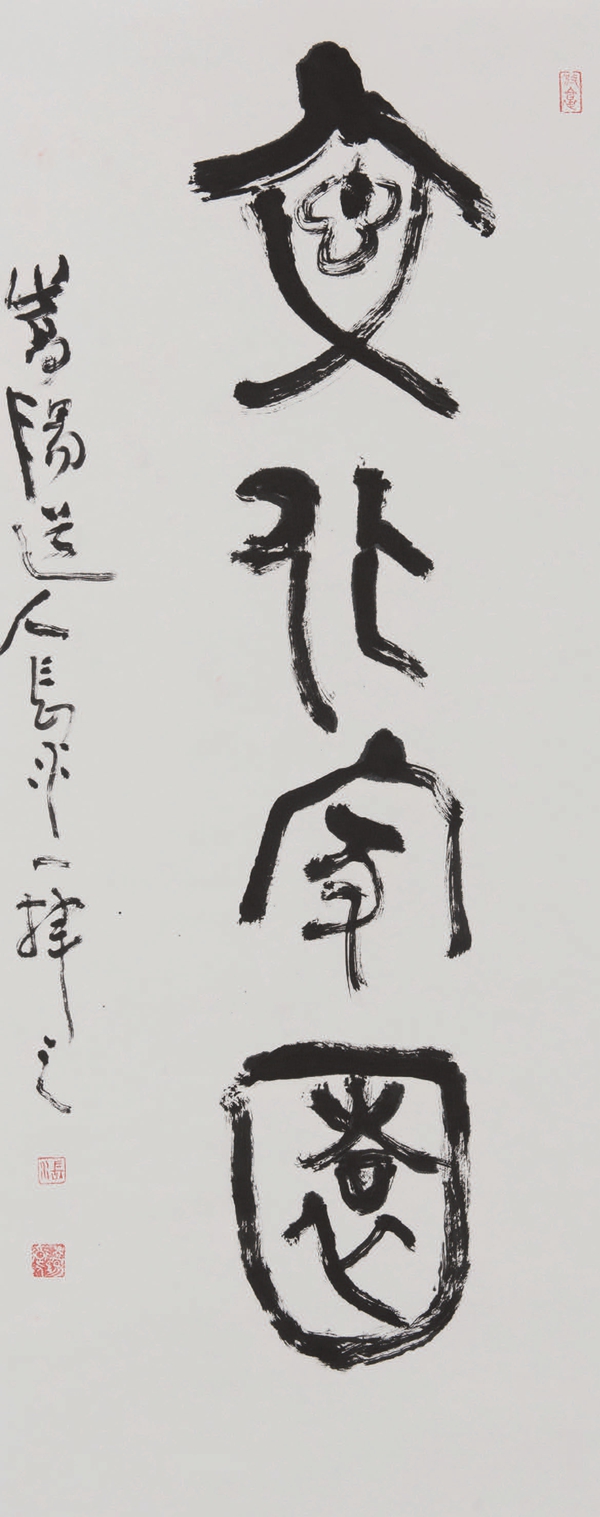 文化家園
嵩陽道人長平一揮之